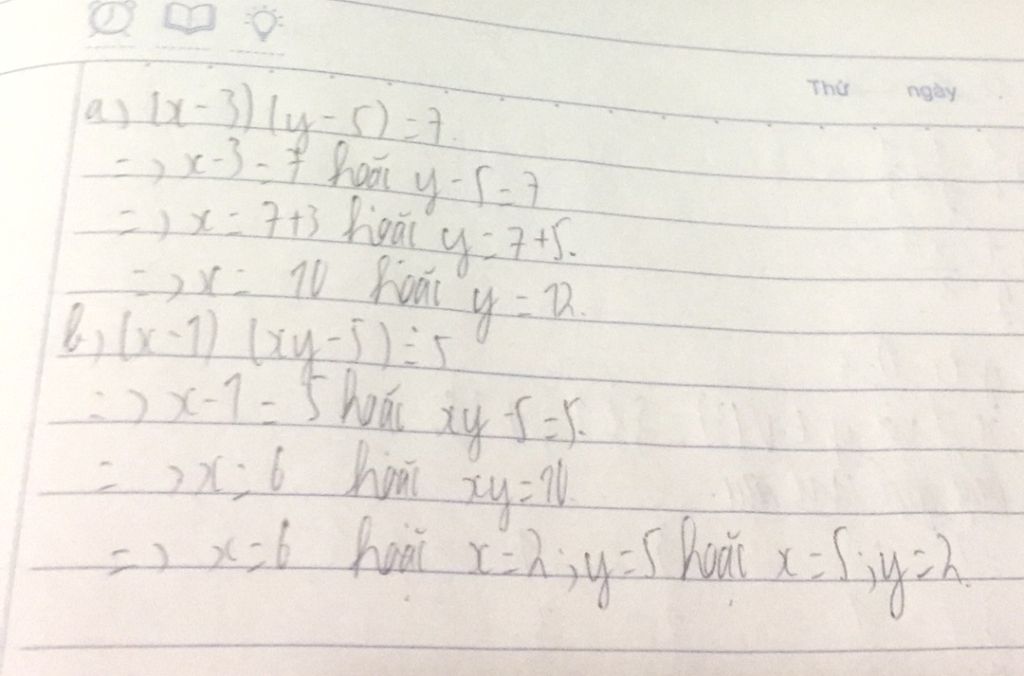 Thứ ngày
a) (x-3)(y-5)=7.
=> x-3=7 hoặc y-5=7
=> x=7+3 hoặc y=7+5.
=> x=10 hoặc y=12.
b) (x-1) (xy-5)=5
=> x-1=5 hoặc xy-5=5.
=> x=6 hoặc xy=10.
=> x=6 hoặc x=2;y=5 hoặc x=5;y=2.